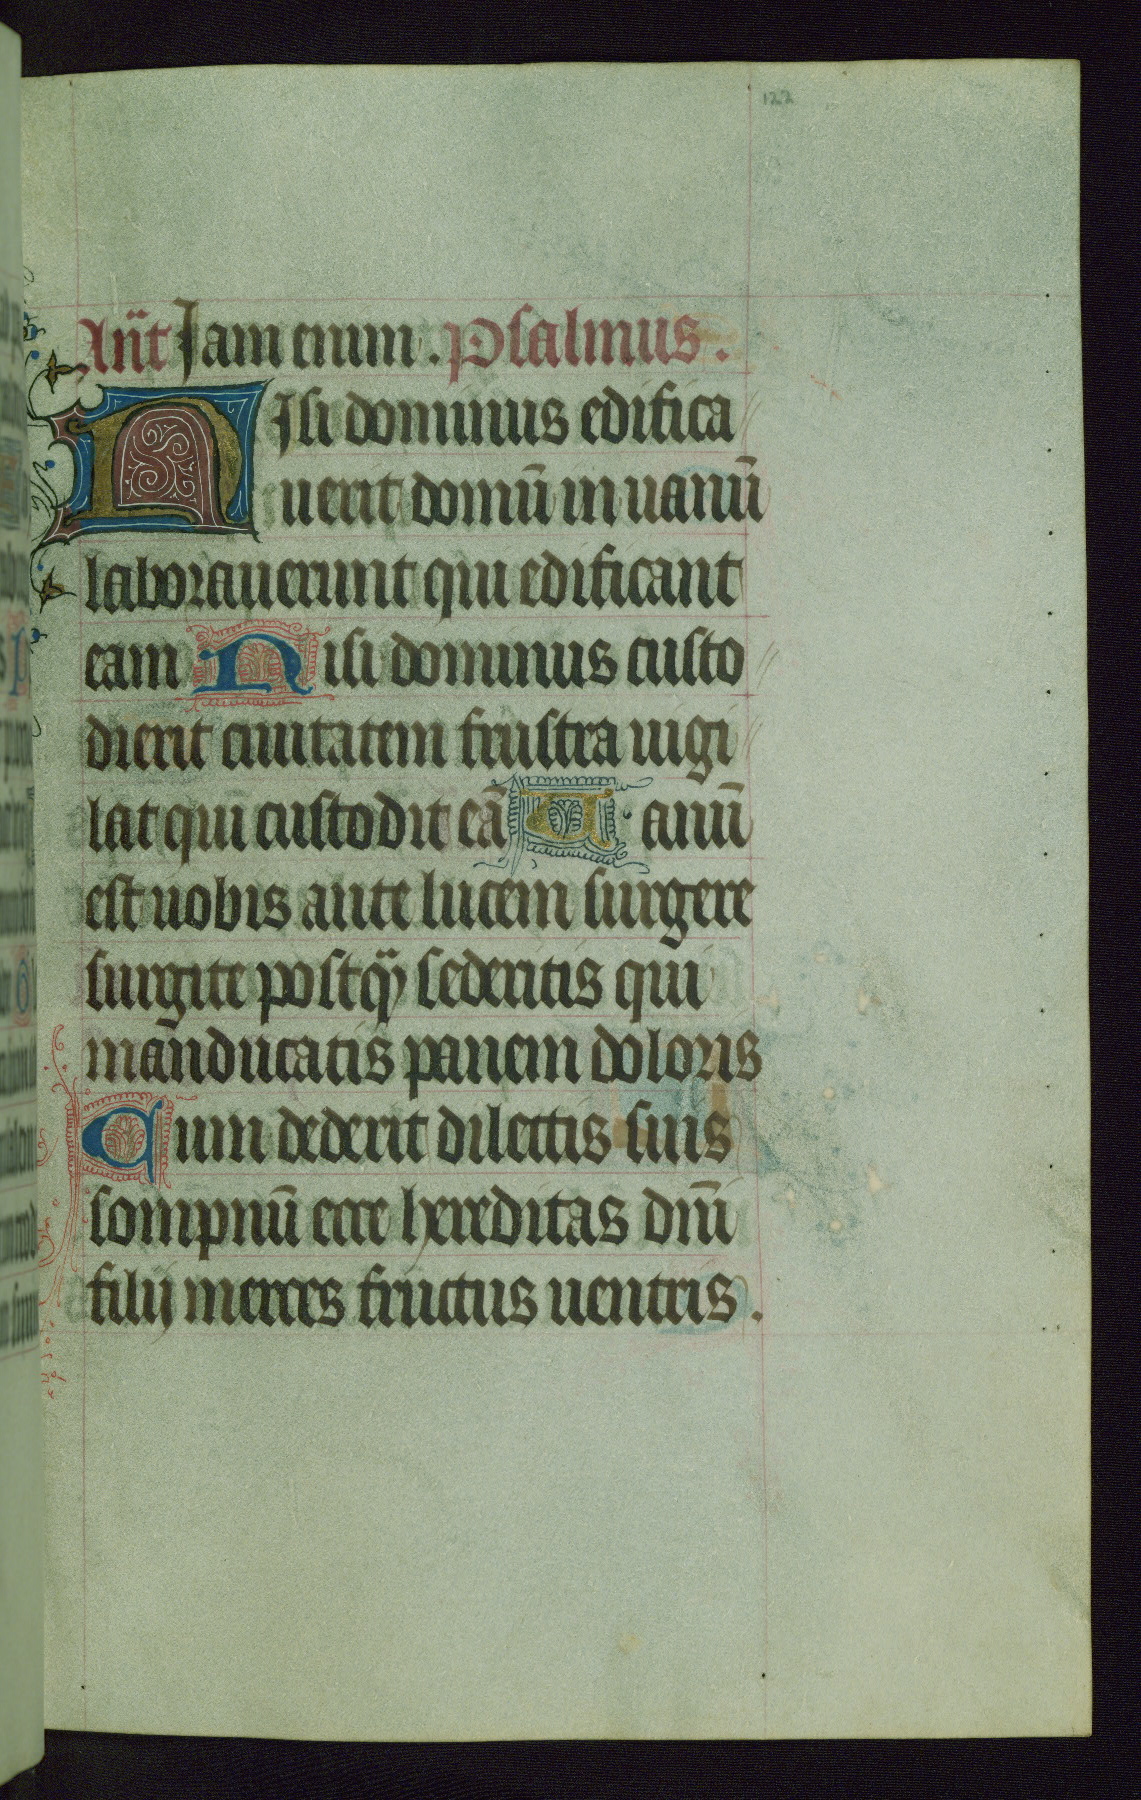 122
Ant̄ Jam enim . Psalmus .
NJsi dominus edifica
uerit domū in uanū
laborauerunt qui edificant
eam Nisi dominus custo
dierit ciuitatem frustra uigi
lat qui custodit eā Uanū
est uobis ante lucem surgere
surgite postq̄ sederitis qui
manducatis panem doloris
Cum dederit dilectis suis
sompnū ecce hereditas dn̄i
filij merces fructus uentris .